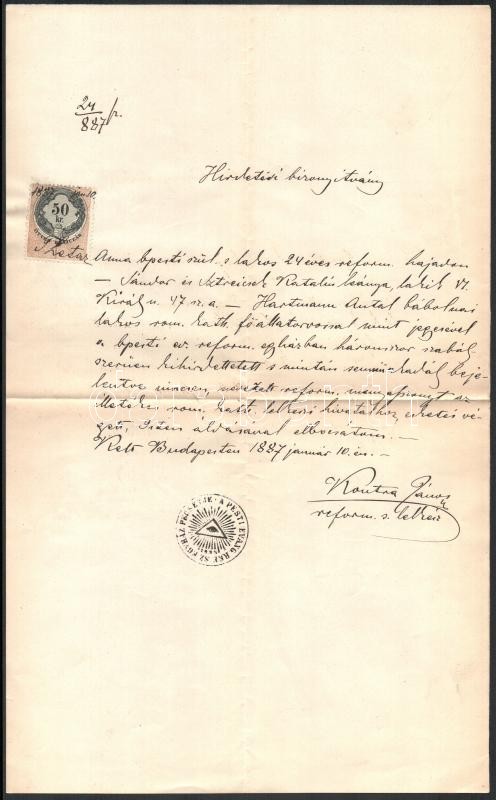 24/887 fr.
Hirdetési bizonyítvány
1887 Jan 10.
50
kr.
Anna bpesti szül. s lakos 24 éves reform. hajadon
– Sándor és Katalin leánya, lakik VI.
Király u. 47 sz. a. – Hartmann Antal bábolnai
lakos rom. kath. főállatorvossal mint jegyesével
a bpesti ev. reform. egyházban háromszor szabály
szerüen kihirdettetett s miután semmi akadály beje-
lentve nincsen, nevezett reform. menyasszonyt az
illetékes rom. kath. lelkészi hivatalhoz esketés vé-
gett, Isten áldásával elbocsátom. –
Kelt Budapesten 1887 január 10. én. –
Kontra János
reform. s. lelkész
A PESTI EVANG. REF. SZ. EGYHÁZ PECSÉTJE